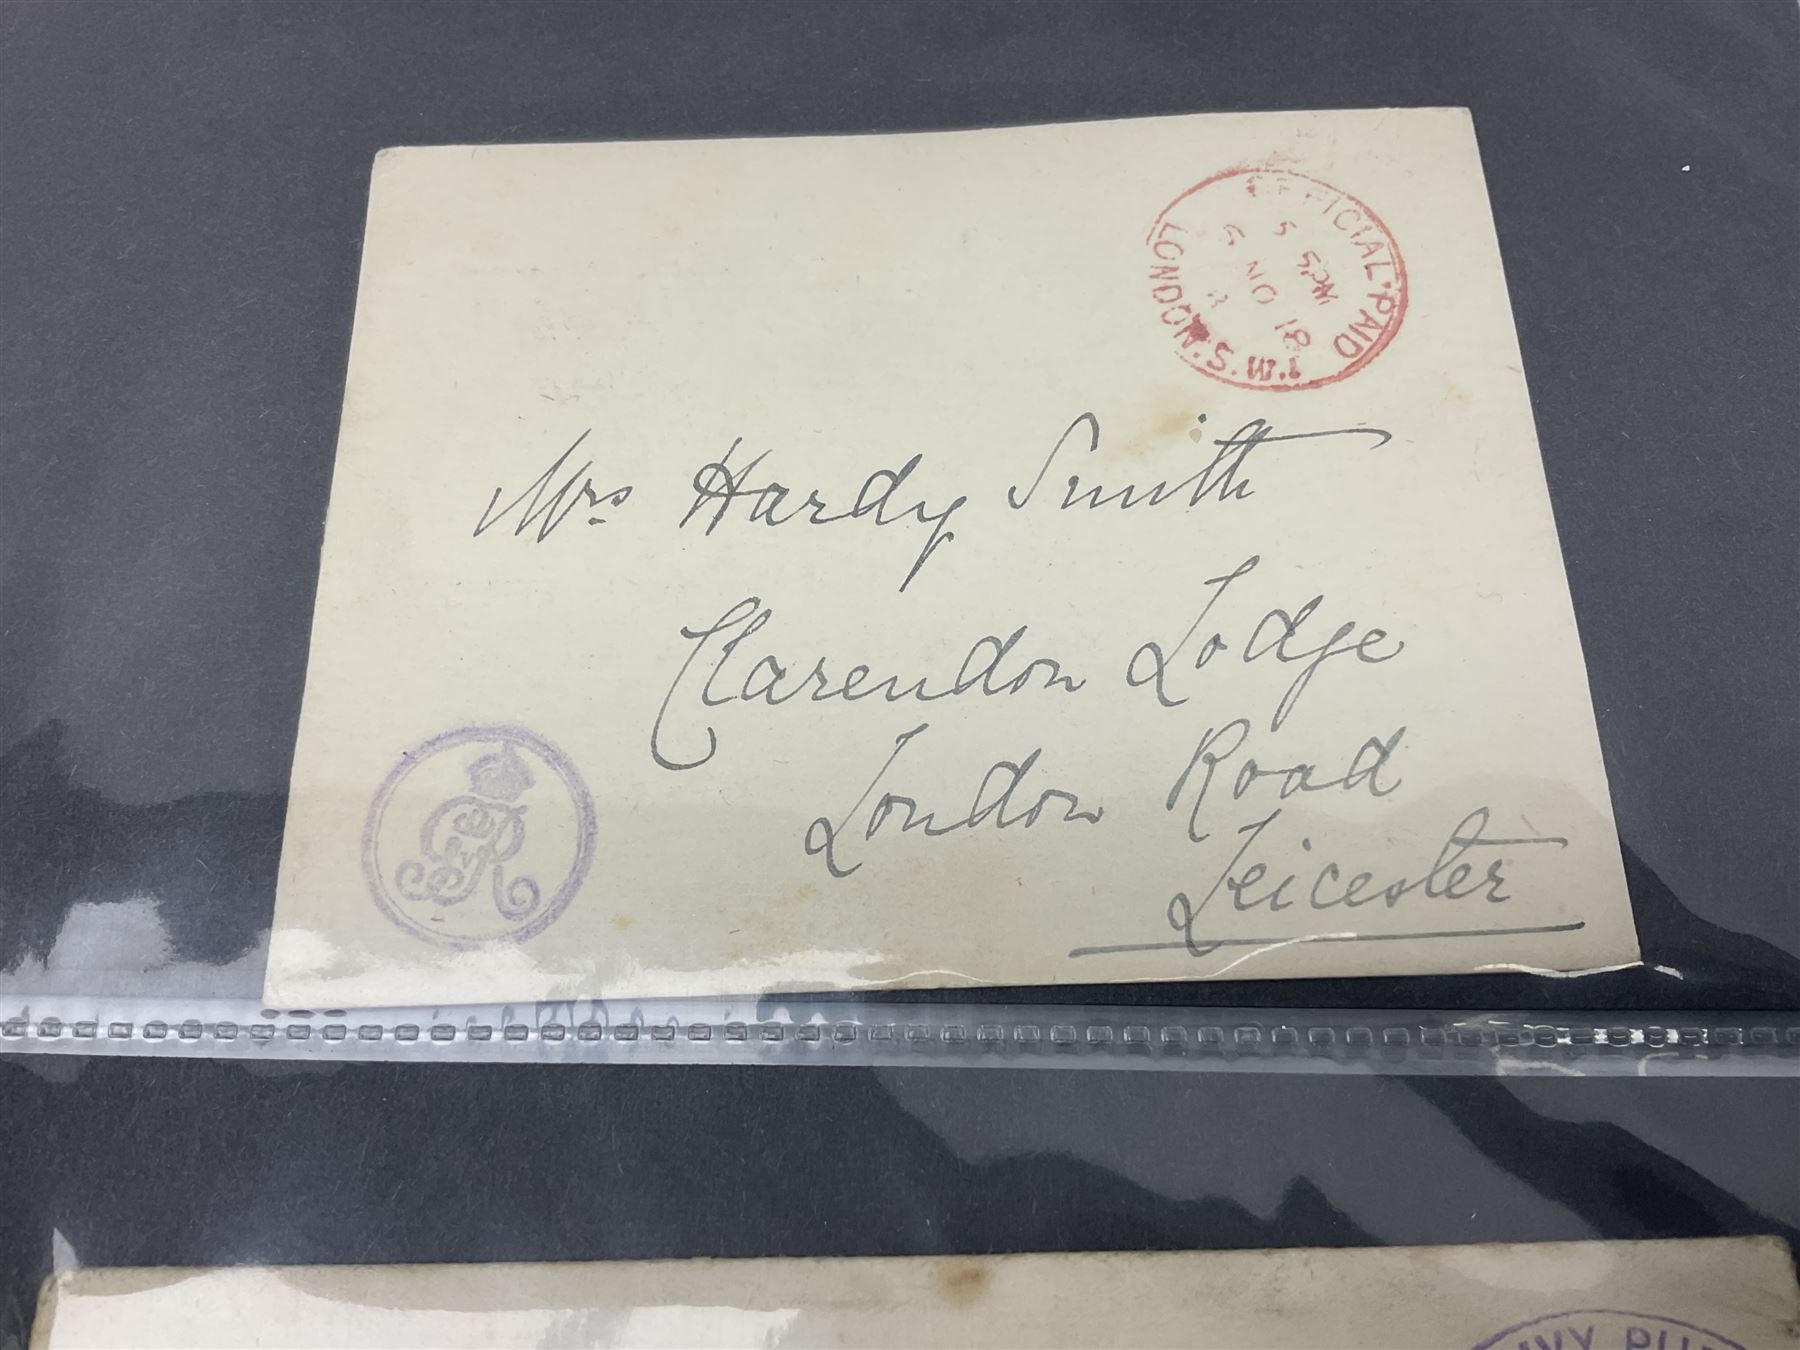 OFFICIAL.PAID
5 5PM
6 NO 18
LONDON.S.W.1
Mrs Hardy Smith
Clarendon Lodge
London Road
Leicester
GRV